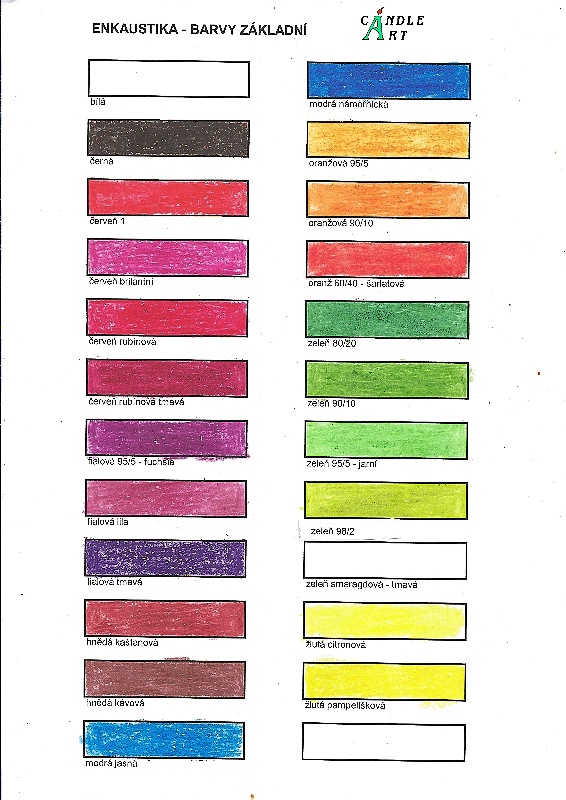 ENKAUSTIKA - BARVY ZÁKLADNÍ
CANDLE
ART
bílá
černá
červeň 1
červeň briliantní
červeň rubínová
červeň rubínová tmavá
fialová 95/5 - fuchsia
fialová lila
fialová tmavá
hnědá kaštanová
hnědá kávová
modrá jasná
modrá námořnická
oranžová 95/5
oranžová 90/10
oranž 60/40 - šarlatová
zeleň 80/20
zeleň 90/10
zeleň 95/5 - jarní
zeleň 98/2
zeleň smaragdová - tmavá
žlutá citronová
žlutá pampelišková